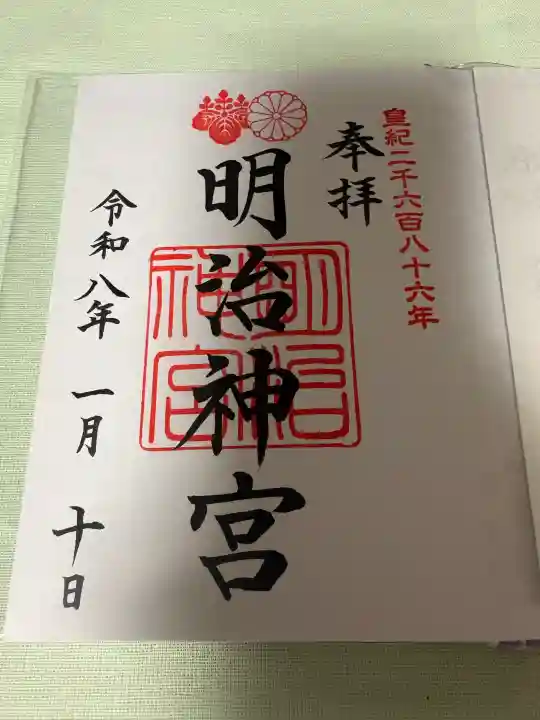 皇紀二千六百八十六年
奉拝
明治神宮
明治
神宮
令和八年 一月 十日